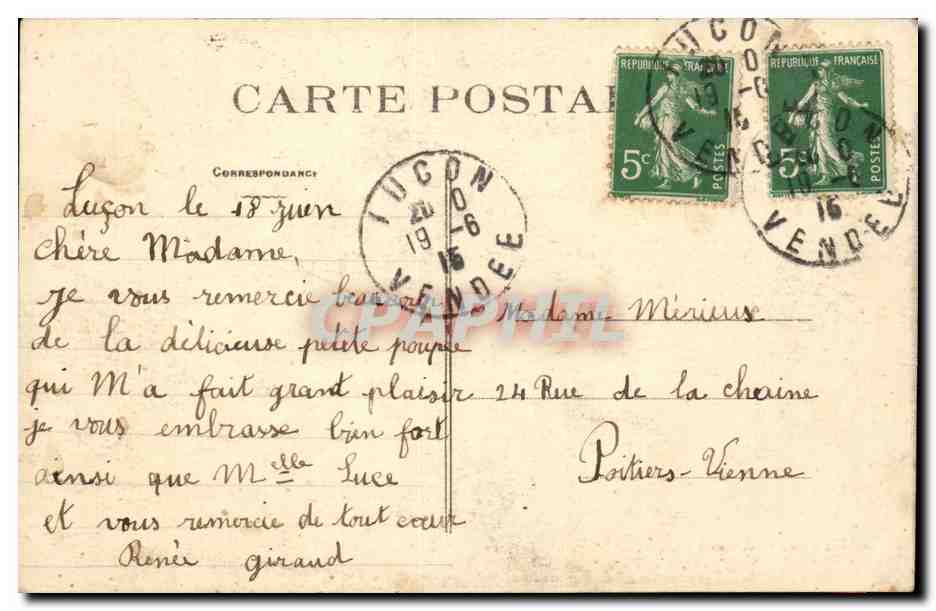 CARTE POSTA
CORRESPONDANCE
Luçon le 18 Juin
chère Madame,
je vous remercie beaucoup
de la délicieuse petite poupée
qui M'a fait grant plaisir
je vous embrasse bien fort
ainsi que Melle Luce
et vous remercie de tout cœur
Renée giraud
Madame Mérieuse
24 Rue de la chaine
Poitiers-Vienne
REPUBLIQUE FRANÇAISE
5c
POSTES
REPUBLIQUE FRANÇAISE
5
POSTES
LUCON
20 0
19 -6
16
VENDEE
LUCON
20 0
19 -6
16
VENDEE
VENDEE
16
CPAPHIL